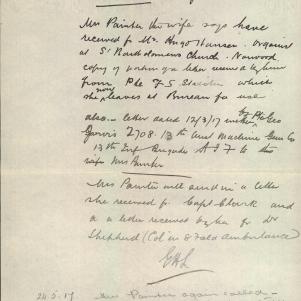 Mrs Painter the wife says have
received fr Mr. Hugo Hansen. Organist
at St Bartholomews Church. Norwood
copy of portion of a letter received by him
from Pte J S which
she now leaves at Bureau for use
also a letter dated 12/3/17 written by Pte Geo
Jarvis 2708. 13th Aust Machine Gun Co
13th Inf Brigade A I F to the
wife Mrs Painter
Mrs Painter will send in a letter
she received fr Capt and
a letter received by her fr Dr
Shepherd (Col in Field Ambulance)
24.5.17 Mrs Painter again called